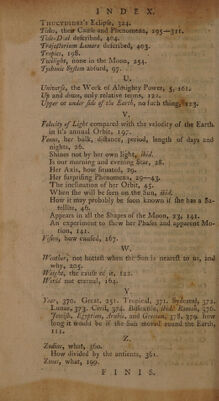 INDEX.
THUCYDIDES's Eclipse, 324.
Tides, their Cause and Phenomena, 295—311.
Tide-Dial described, 404.
Trajectorium Lunare described, 403.
Tropics, 198.
Twilight, none in the Moon, 254.
Tychonic System absurd, 97.
U.
Universe, the Work of Almighty Power, 5, 161.
Up and down, only relative terms, 122.
Upper or under side of the Earth, no such thing, 123.
V.
Velocity of Light compared with the velocity of the Earth
in it's annual Orbit, 197.
Venus, her bulk, distance, period, length of days and
nights, 26.
Shines not by her own light, ibid.
Is our morning and evening Star, 28.
Her Axis, how situated, 29.
Her surprising Phenomena, 29—43.
The inclination of her Orbit, 45.
When she will be seen on the Sun, ibid.
How it may probably be soon known if she has a Sa-
tellite, 46.
Appears in all the Shapes of the Moon, 23, 141.
An experiment to shew her Phases and apparent Mo-
tion, 141.
Vision, how caused, 167.
W.
Weather, not hottest when the Sun is nearest to us, and
why, 205.
Weight, the cause of it, 122.
World not eternal, 164.
Y
Year, 370. Great, 251. Tropical, 371. Sydereal, 372.
Lunar, 373. Civil, 374. Bissextile, ibid. Roman, 376.
Jewish, Egyptian, Arabic, and Grecian, 378, 379. how
long it would be if the Sun moved round the Earth,
111.
Z.
Zodiac, what, 360.
How divided by the antients, 361.
Zones, what, 199.
FINIS.